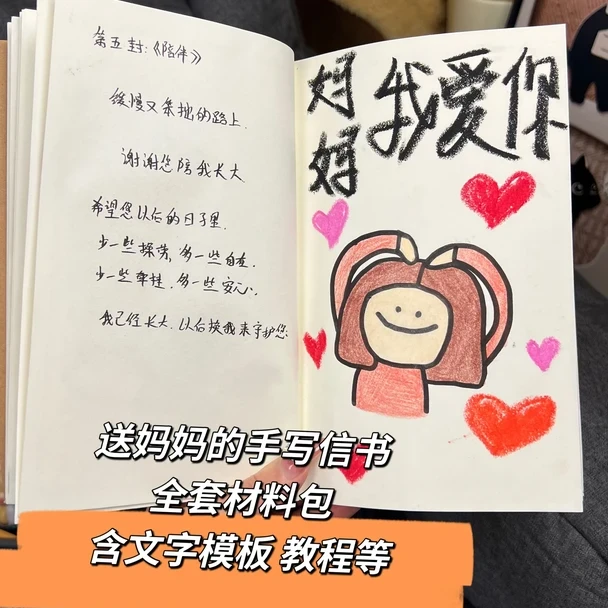 第五封:《陪伴》
缓慢又笨拙的路上.
谢谢您陪我长大
希望您以后的日子里.
少一些操劳,多一些自在.
少一些牵挂.多一些安心.
我已经长大.以后换我来守护您.
妈妈我爱你
送妈妈的手写信书
全套材料包
含文字模板 教程等